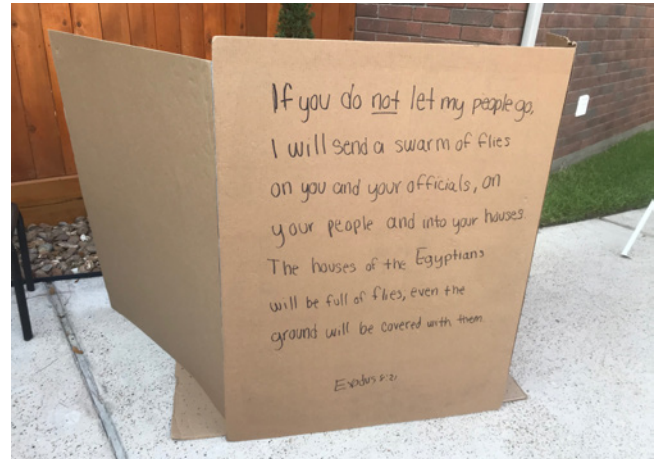 If you do not let my people go,
I will send a swarm of flies
on you and your officials, on
your people and into your houses.
The houses of the Egyptians
will be full of flies, even the
ground will be covered with them.
Exodus 8:21